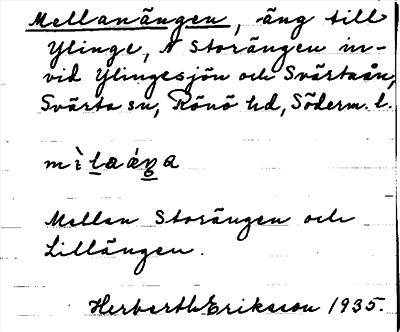 Mellanängen, äng till
Ylinge, N Storängen in-
vid Ylingesjön och Svärtaån,
Svärta sn, Rönö hd, Söderm. l.
Mellan Storängen och
Lillängen.
Herbert Eriksson 1935.